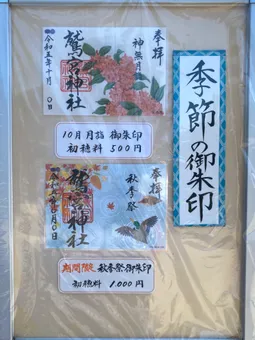 季節の御朱印
奉拝
神無月
鷲宮神社
令和五年十月
〇日
10月月詣 御朱印
初穂料 500円
奉拝
秋季祭
鷲宮神社
期間限定 秋季祭御朱印
初穂料 1,000円